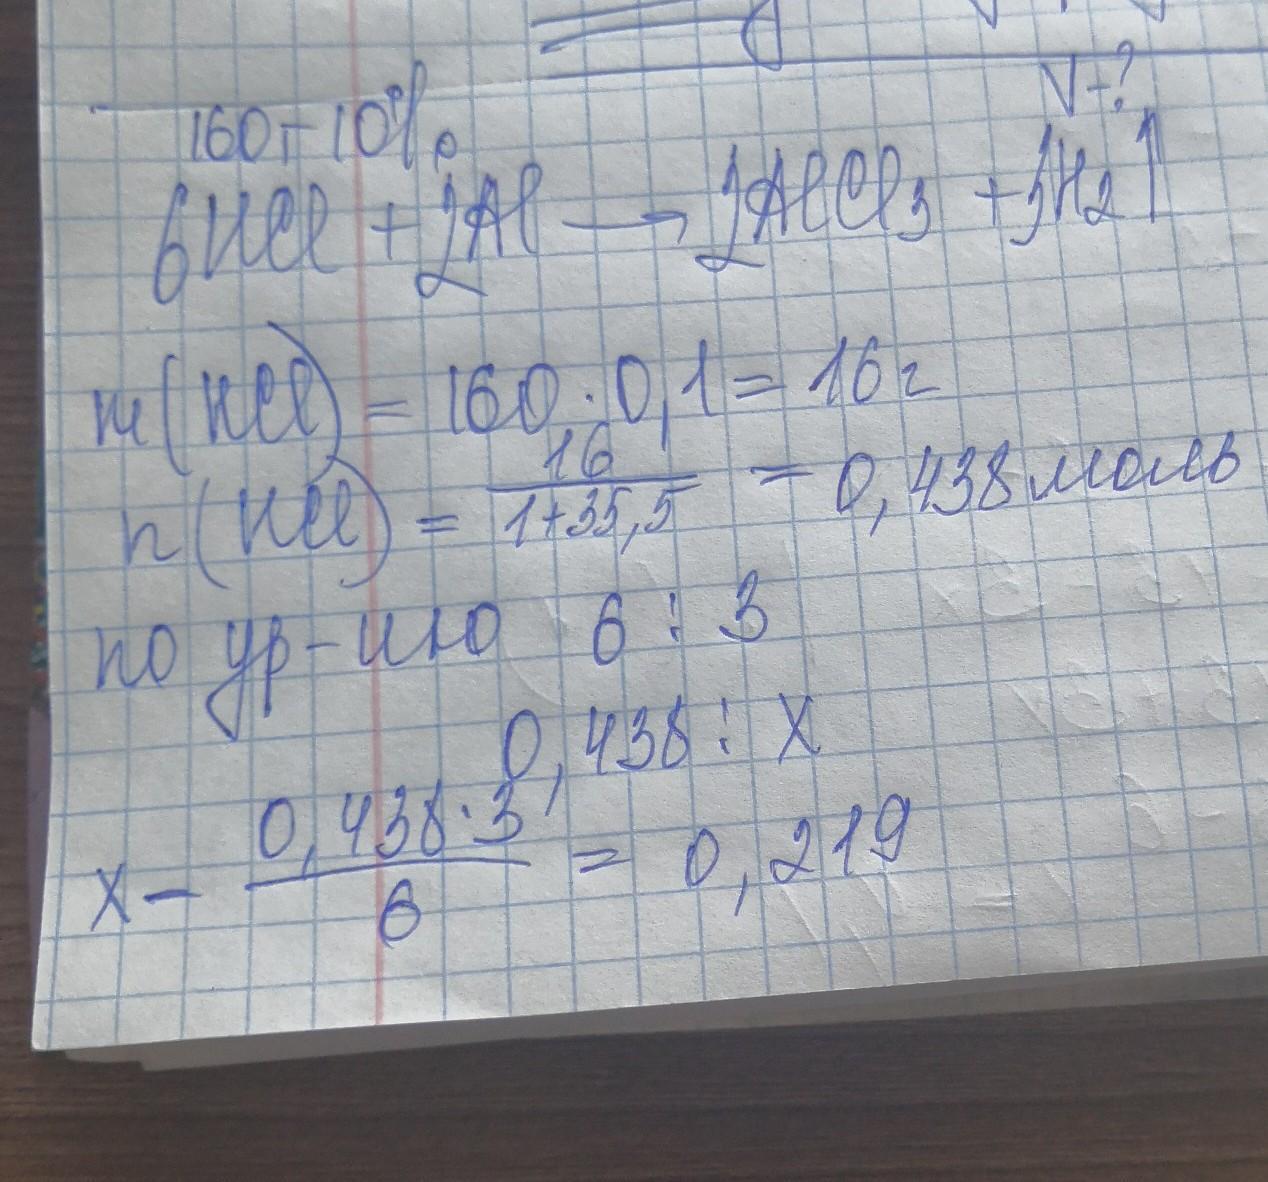 V-?
160г 10%
6HCl + 2Al → 2AlCl3 + 3H2↑
m(HCl) = 160 · 0,1 = 16г
n(HCl) = 16 / 1+35,5 = 0,438 моль
по ур-нию 6 : 3
0,438 : x
x - 0,438·3 / 6 = 0,219